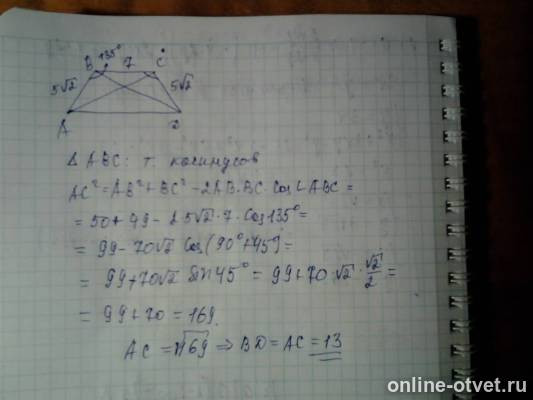 B 135° 7 C
5√2 5√2
A D
Δ ABC: т. косинусов
AC² = AB² + BC² - 2AB·BC·Cos∠ABC =
= 50 + 49 - 2·5√2·7·Cos135° =
= 99 - 70√2 Cos(90° + 45°) =
= 99 + 70√2 Sin 45° = 99 + 70·√2·√2/2 =
= 99 + 70 = 169.
AC = √169 ⇒ BD = AC = 13
online-otvet.ru